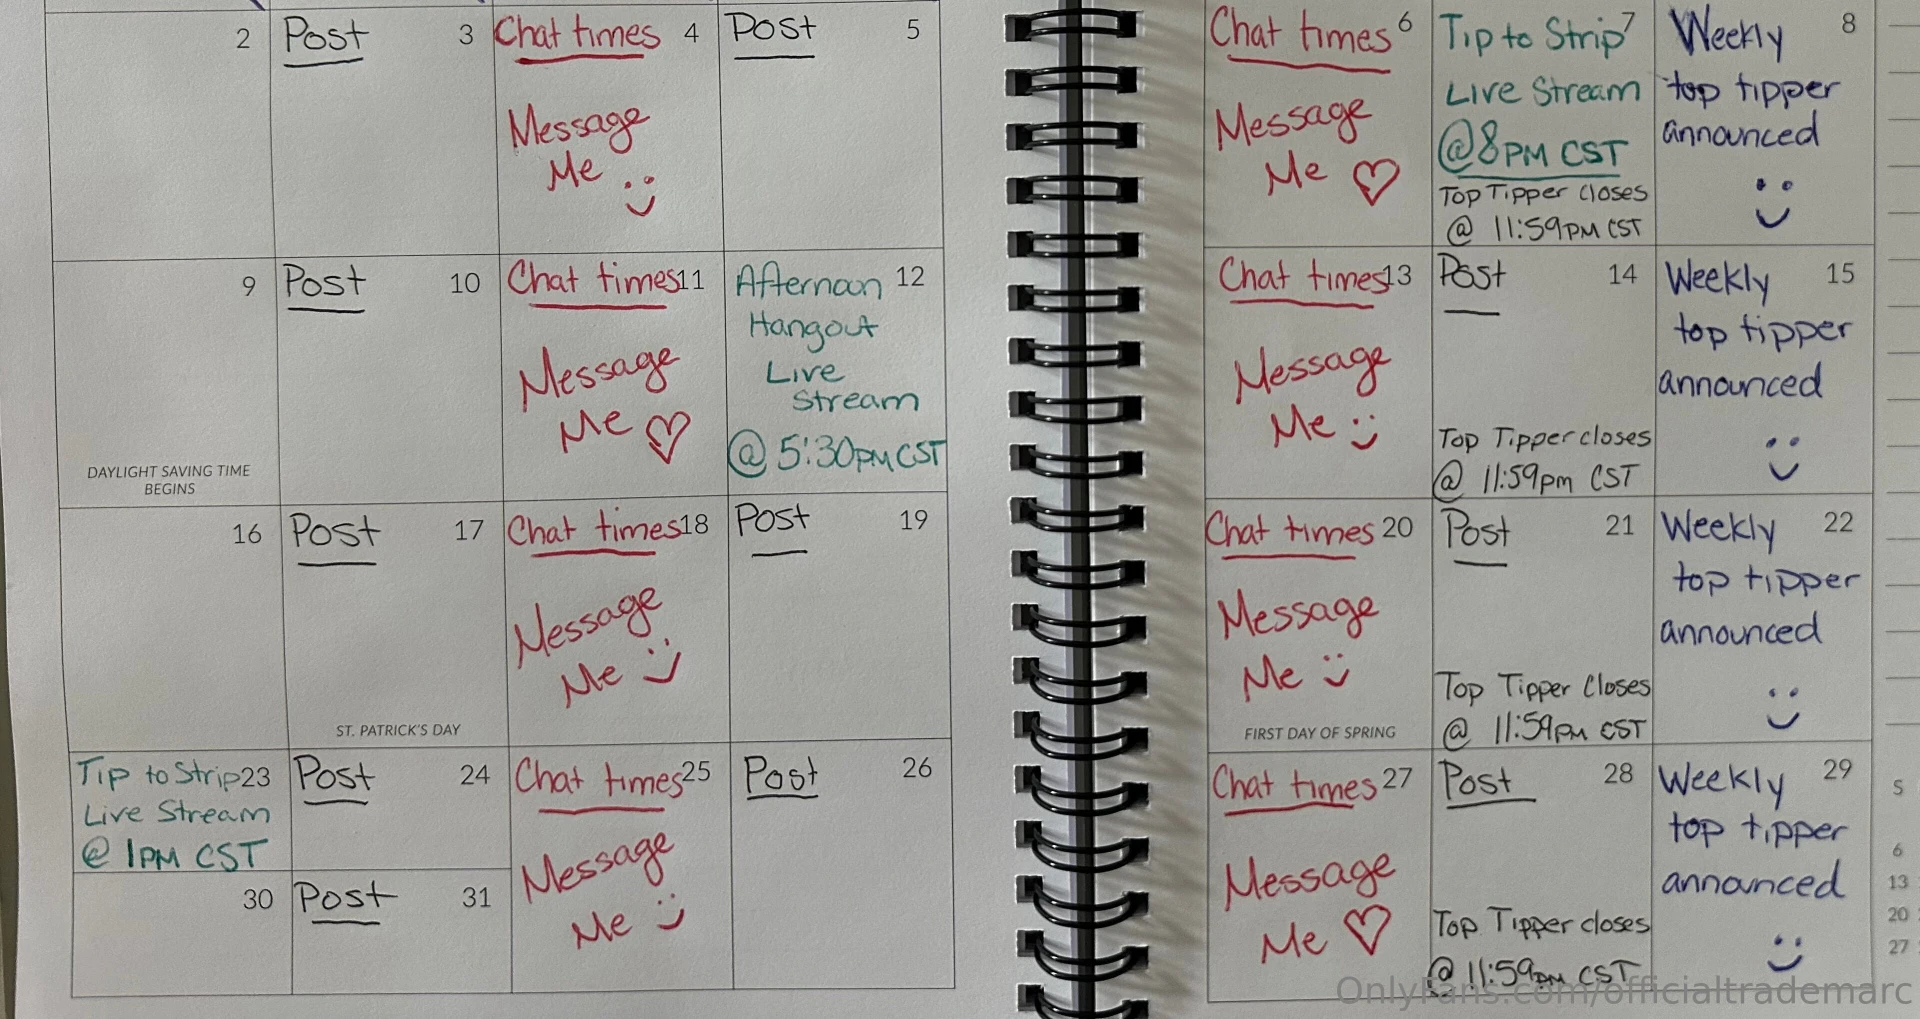 2
Post 3
Chat times 4
Message
Me
Post 5
Chat times 6
Message
Me
Tip to Strip 7
Live Stream
@8PM CST
Top Tipper closes
@ 11:59PM CST
Weekly 8
top tipper
announced
9
DAYLIGHT SAVING TIME
BEGINS
Post 10
Chat times 11
Message
Me
Afternoon 12
Hangout
Live
Stream
@ 5:30PM CST
Chat times 13
Message
Me
Post 14
Top Tipper closes
@ 11:59pm CST
Weekly 15
top tipper
announced
16
Post 17
ST. PATRICK'S DAY
Chat times 18
Message
Me
Post 19
Chat times 20
Message
Me
FIRST DAY OF SPRING
Post 21
Top Tipper Closes
@ 11:59PM CST
Weekly 22
top tipper
announced
Tip to Strip 23
Live Stream
@ 1PM CST
Post 24
Chat times 25
Message
Me
Post 26
Chat times 27
Message
Me
Post 28
Top Tipper closes
@ 11:59PM CST
Weekly 29
top tipper
announced
30
Post 31
S
6
13
20
27
OnlyFans.com/officialtrademarc